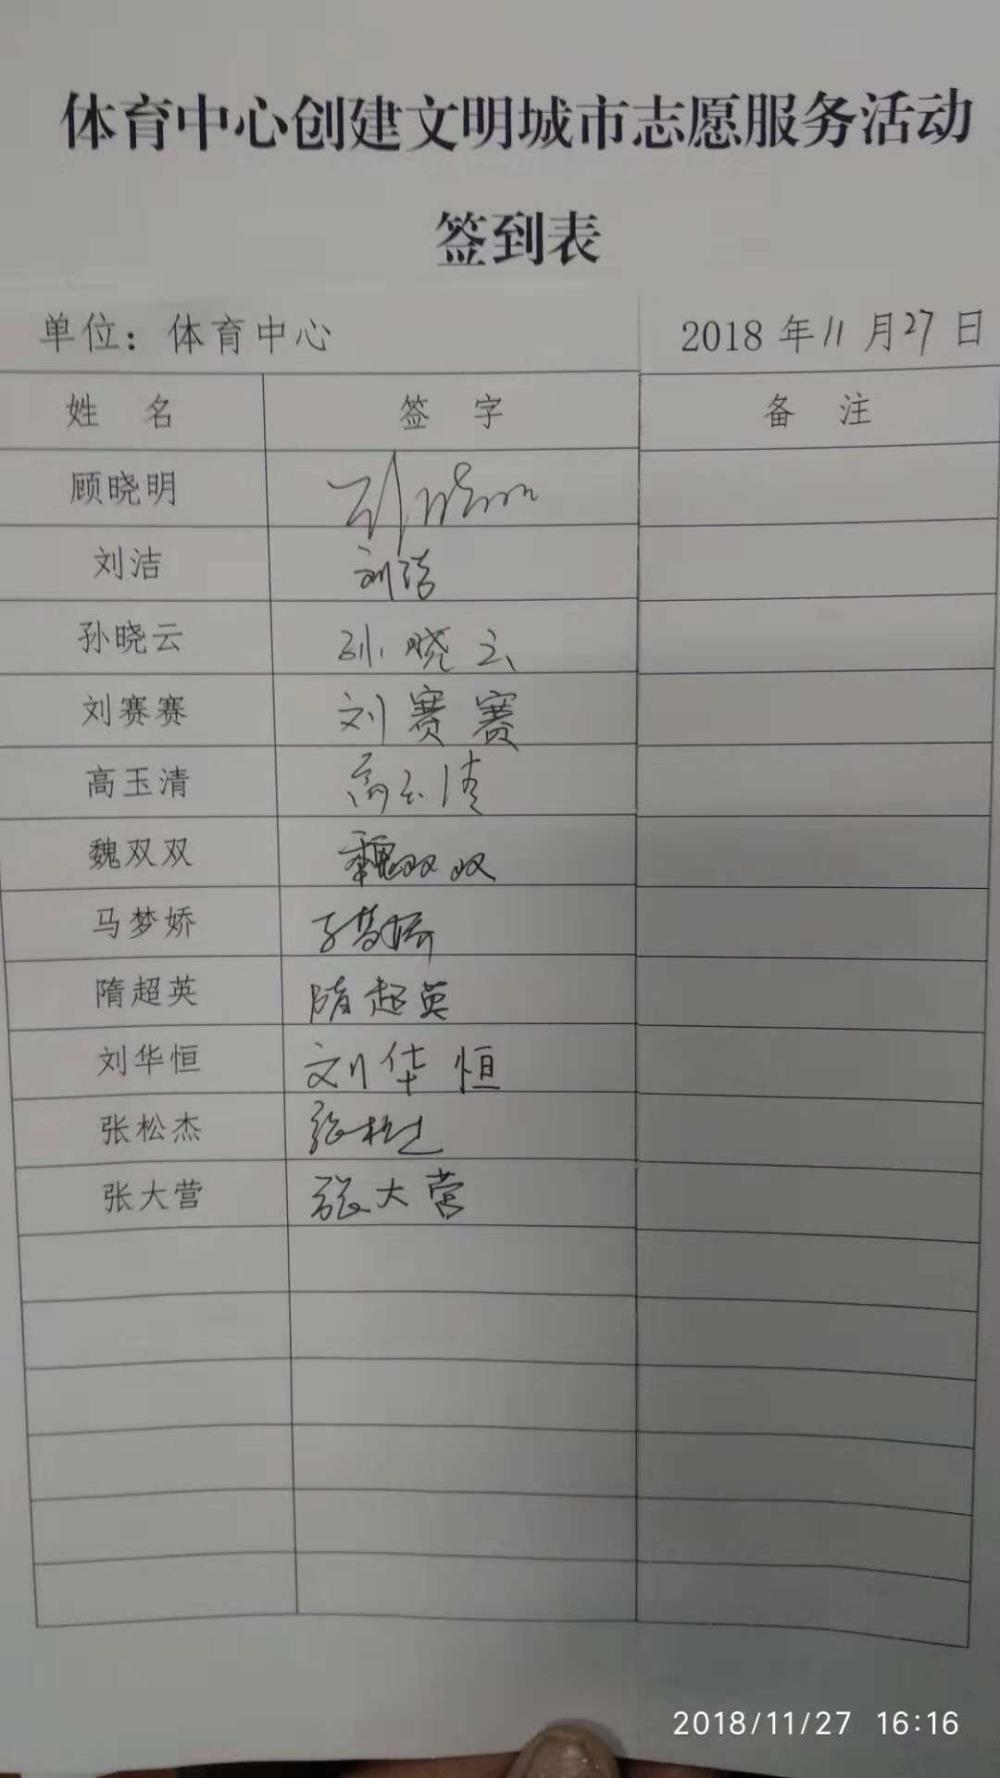 体育中心创建文明城市志愿服务活动
签到表
单位：体育中心 2018 年 11 月 27 日
姓 名 签 字 备 注
顾晓明
刘洁 刘洁
孙晓云 孙晓云
刘赛赛 刘赛赛
高玉清 高玉清
魏双双 魏双双
马梦娇 马梦娇
隋超英 隋超英
刘华恒 刘华恒
张松杰 张松杰
张大营 张大营
2018/11/27 16:16